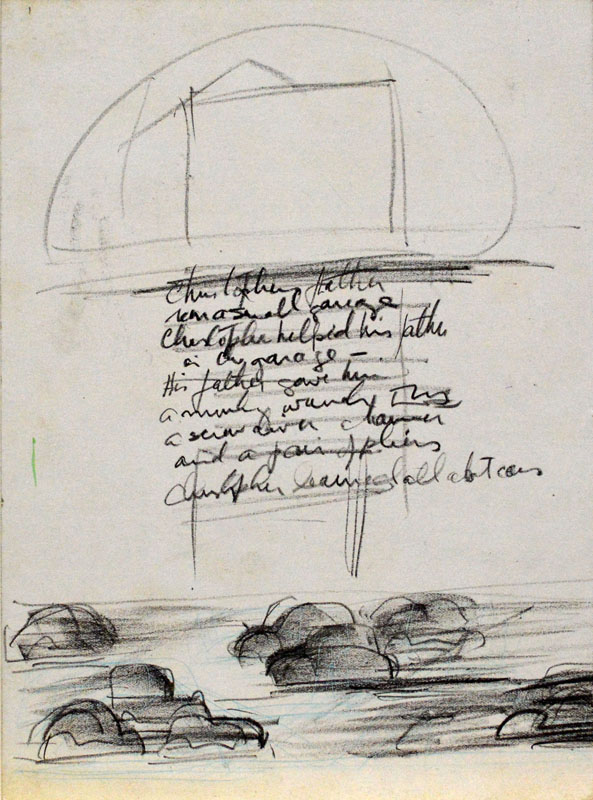 Christophers father
ran a small garage
Christopher helped his father
in the garage –
His father gave him
a monkey wrench
a screwdriver a hammer
and a pair of pliers
Christopher learned all about cars